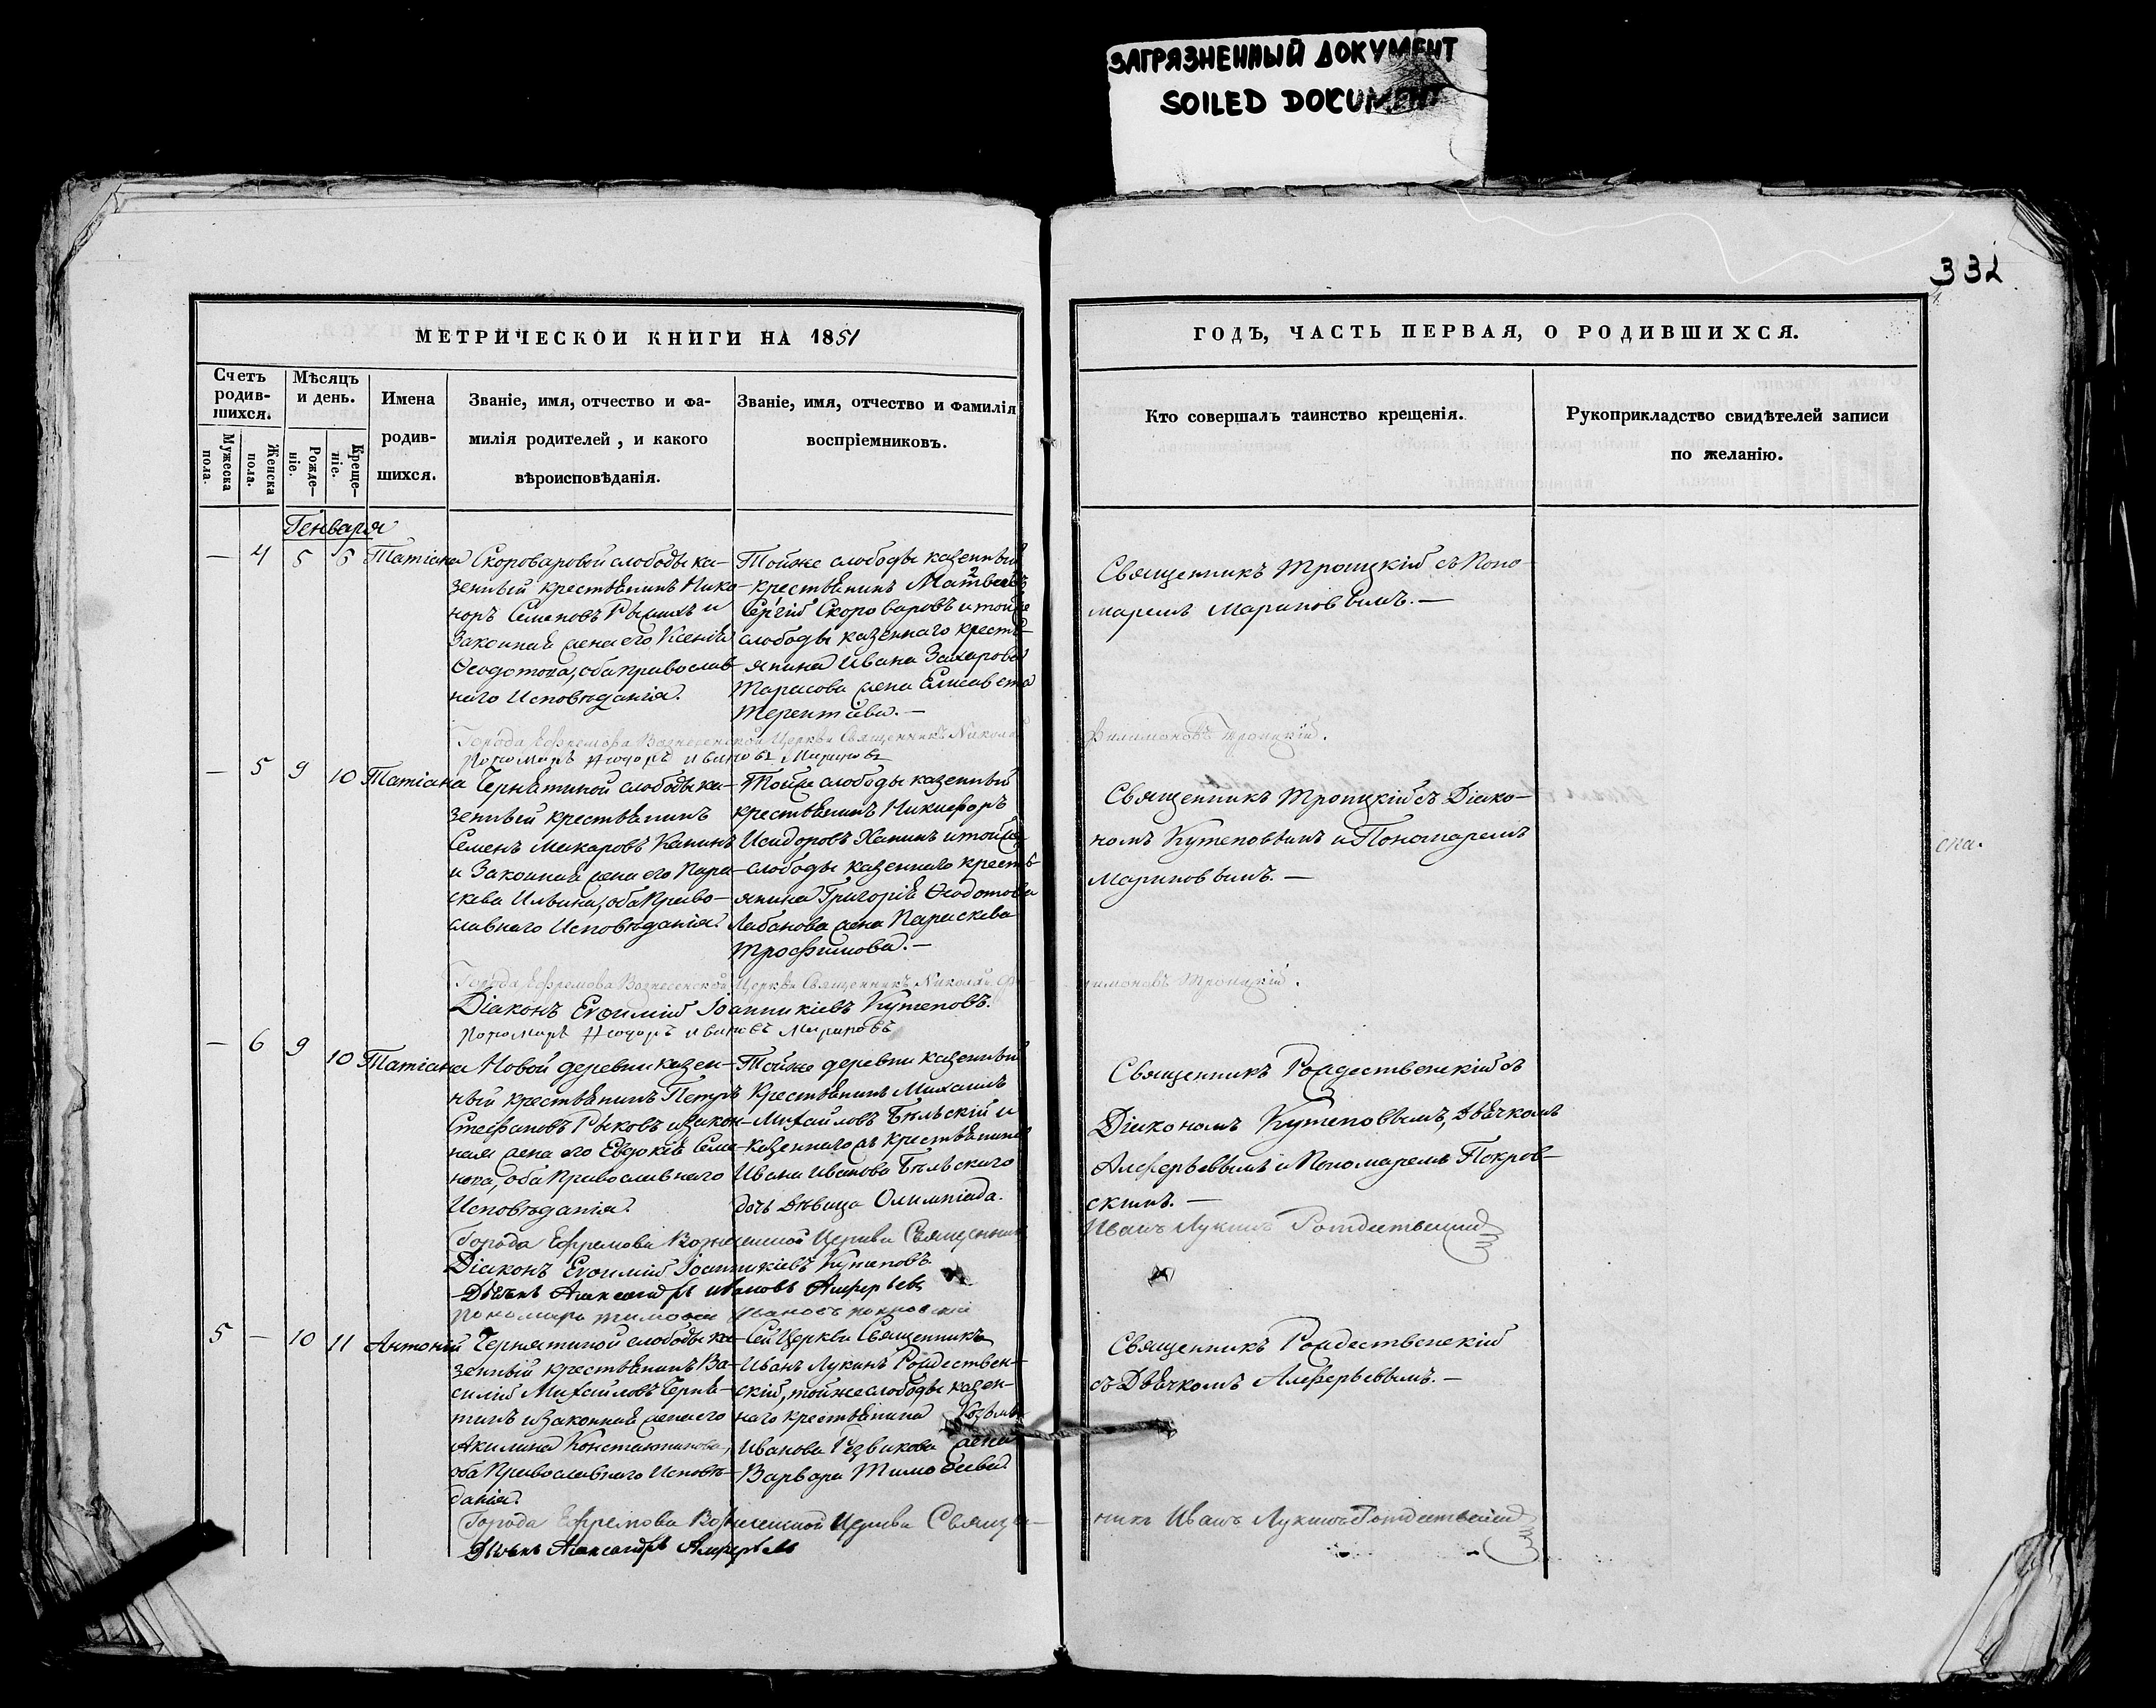 ЗАГРЯЗНЕННЫЙ ДОКУМЕНТ
SOILED DOCUMENT
332
МЕТРИЧЕСКОЙ КНИГИ НА 1851
Счетъ родившихся.
Мужеска пола.
Женска пола.
Мѣсяцъ и день.
Рожде-
ніе.
Креще-
ніе.
Имена
родив-
шихся.
Званіе, имя, отчество и фа-
милія родителей, и какого
вѣроисповѣданія.
Званіе, имя, отчество и фамилія
воспріемниковъ.
ГОДЪ, ЧАСТЬ ПЕРВАЯ, О РОДИВШИХСЯ.
Кто совершалъ таинство крещенія.
Рукоприкладство свидѣтелей записи
по желанію.
Генваря
— 4 5 6 Татіана
Скороваровой слободы ка-
зенный крестьянинъ Нико-
норъ Семеновъ и
законная жена его Ксенія
Ѳеодотова, оба православ-
наго Исповѣданія.
Тойже слободы казенный
крестьянинъ Матвеевъ
Сергій Скороваровъ и тойже
слободы казеннаго кресть-
янина Ивана Захарова
Тарасова жена Елисавета
Терентіева.—
Священникъ Троицкій съ Поно-
маремъ Мариновымъ.—
Города Ефремова Вознесенской Церкви Священникъ Николай
Филимоновъ Троицкій.
Пономарь Ѳедоръ Ивановъ Мариновъ
— 5 9 10 Татіана
Чернятиной слободы ка-
зенный крестьянинъ
Семенъ Макаровъ Ханинъ
и Законная жена его Пара-
скева Ильина, оба Право-
славнаго Исповѣданія.
Тойже слободы казенный
крестьянинъ Никифоръ
Исидоровъ Ханинъ и тойже
слободы казеннаго кресть-
янина Григорія Ѳеодотова
Лабанова жена Параскева
Трофимова.—
Священникъ Троицкій съ Діако-
номъ Кутеповымъ и Пономаремъ
Мариновымъ.—
Города Ефремова Вознесенской Церкви Священникъ Николай Фи-
лимоновъ Троицкій.
Діаконъ Евѳимій Іоанникіевъ Кутеповъ.
Пономарь Ѳедоръ Ивановъ Мариновъ
— 6 9 10 Татіана
Новой деревни казен-
ный крестьянинъ Петръ
Стефановъ Рыковъ и закон-
ная жена его Евдокія Семе-
нова, оба Православнаго
Исповѣданія.
Тойже деревни казенный
Крестьянинъ Михаилъ
Михайловъ Бѣльскій и
казеннаго жъ крестьянина
Ивана Иванова Бѣльскаго
дочь дѣвица Олимпіада.
Священникъ Рождественскій съ
Діакономъ Кутеповымъ, Дьячкомъ
Алферьевымъ и Пономаремъ Покров-
скимъ.—
Города Ефремова Вознесенской Церкви Священникъ
Иванъ Лукинъ Рождественскій
Діаконъ Евѳимій Іоанникіевъ Кутеповъ
Дьячекъ Александръ Ивановъ Алферьевъ
Пономарь Тимофей Ивановъ Покровскій
5 — 10 11 Антоній
Чернятиной слободы ка-
зенный крестьянинъ Ва-
силій Михайловъ Черня-
тинъ и законная жена его
Акилина Константинова,
оба Православнаго Исповѣ-
данія.
Сей Церкви Священникъ
Иванъ Лукинъ Рождествен-
скій, тойже слободы казен-
наго крестьянина Козьмы
Иванова Резвикова жена
Варвара Тимоѳеева.
Священникъ Рождественскій
съ Дьячкомъ Алферьевымъ.—
Города Ефремова Вознесенской Церкви Священ-
никъ Иванъ Лукинъ Рождественскій
Дьячекъ Александръ Алферьевъ